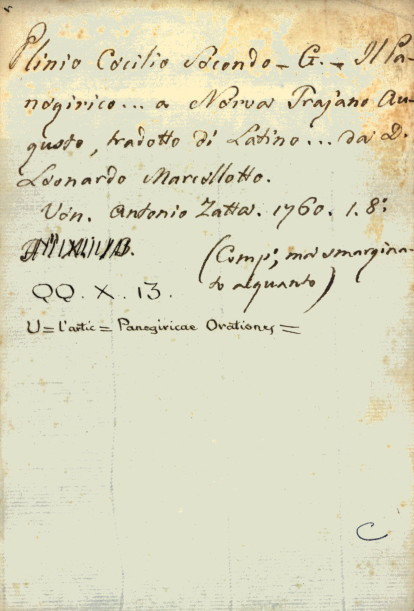 Plinio Cecilio Secondo - G. - Il Pa-
negirico... a Nerva Trajano Au-
gusto, tradotto di Latino... da D.
Leonardo Marcellotto.
Ven. Antonio Zatta. 1760. 1. 8:
(Comp; ma smargina-
to alquanto)
QQ. X. 13.
V = l'artic = Panegiricae Orationes =
C